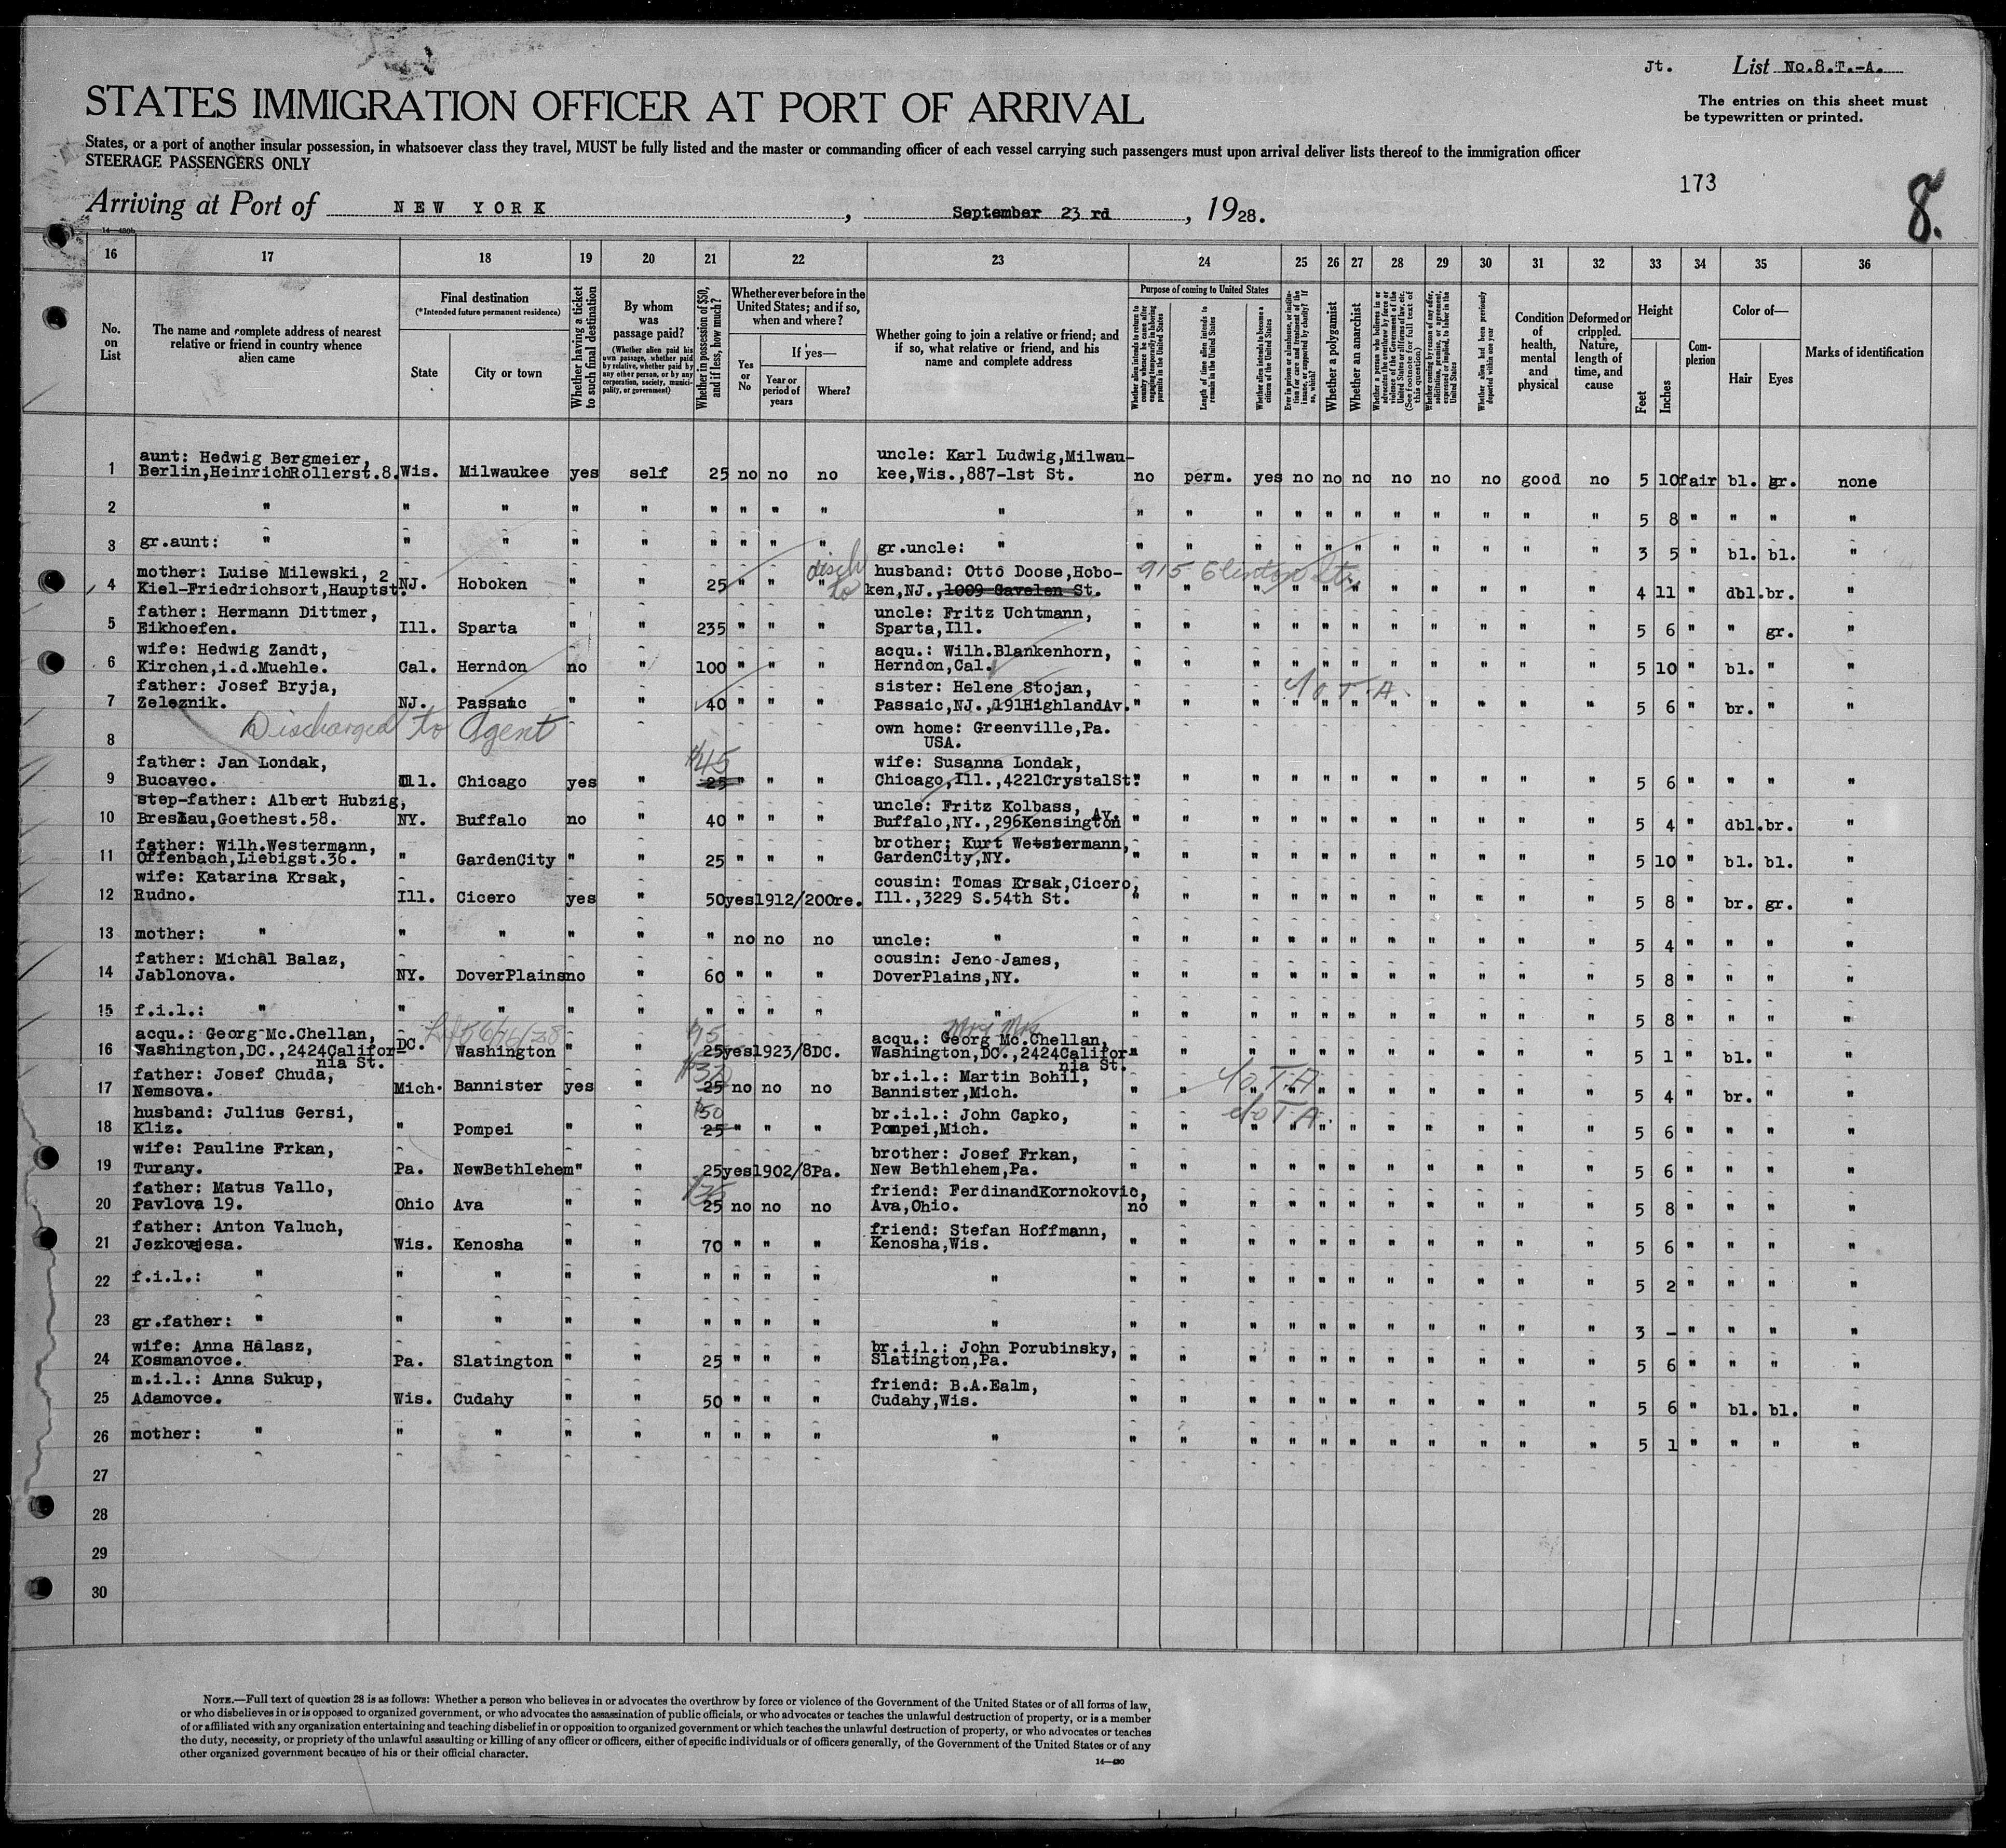 Jt. List No.8.T.-A.
STATES IMMIGRATION OFFICER AT PORT OF ARRIVAL
The entries on this sheet must
be typewritten or printed.
States, or a port of another insular possession, in whatsoever class they travel, MUST be fully listed and the master or commanding officer of each vessel carrying such passengers must upon arrival deliver lists thereof to the immigration officer
STEERAGE PASSENGERS ONLY
173
8.
Arriving at Port of NEW YORK, September 23 rd, 1928.
16 17 18 19 20 21 22 23 24 25 26 27 28 29 30 31 32 33 34 35 36
No. on List
The name and complete address of nearest relative or friend in country whence alien came
Final destination
(*Intended future permanent residence)
State
City or town
Whether having a ticket to such final destination
By whom was passage paid?
(Whether alien paid his own passage, whether paid by relative, whether paid by any other person, or by any corporation, society, municipality, or government)
Whether in possession of $50, and if less, how much?
Whether ever before in the United States; and if so, when and where?
Yes or No
If yes—
Year or period of years
Where?
Whether going to join a relative or friend; and if so, what relative or friend, and his name and complete address
Purpose of coming to United States
Whether alien intends to return to country whence he came after engaging temporarily in laboring pursuits in the United States
Length of time alien intends to remain in the United States
Whether alien intends to become a citizen of the United States
Whether a polygamist
Whether an anarchist
Whether alien had been previously deported within one year
Condition of health, mental and physical
Deformed or crippled. Nature, length of time, and cause
Height
Feet
Inches
Complexion
Color of—
Hair
Eyes
Marks of identification
1 aunt: Hedwig Bergmeier, uncle: Karl Ludwig,Milwau-
Berlin,HeinrichRollerst.8. Wis. Milwaukee yes self 25 no no no kee,Wis.,887-1st St. no perm. yes no no no no no no good no 5 10 fair bl. gr. none
2 " " " " " " " " " " " " " " " " " " " " " " 5 8 " " " "
3 gr.aunt: " " " " " " " " " gr.uncle: " " " " " " " " " " " " 3 5 " bl. bl. "
disch to
915 Clinton St.
4 mother: Luise Milewski, 2 husband: Otto Doose,Hobo-
Kiel-Friedrichsort,Hauptst. NJ. Hoboken " " 25 " " " ken,NJ.,1009 Gavelen St. " " " " " " " " " " " 4 11 " dbl. br. "
5 father: Hermann Dittmer, uncle: Fritz Uchtmann,
Eikhoefen. Ill. Sparta " " 235 " " " Sparta,Ill. " " " " " " " " " " " 5 6 " " gr. "
6 wife: Hedwig Zandt, acqu.: Wilh.Blankenhorn,
Kirchen,i.d.Muehle. Cal. Herndon no " 100 " " " Herndon,Cal. " " " " " " " " " " " 5 10 " bl. " "
7 father: Josef Bryja, sister: Helene Stojan,
Zeleznik. NJ. Passaic " " 40 " " " Passaic,NJ.,191HighlandAv. " " " " " " " " " " " 5 6 " br. " "
c/o T.A.
Discharged to Agent
8 own home: Greenville,Pa.
USA.
9 father: Jan Londak, $45 wife: Susanna Londak,
Bucavec. Ill. Chicago yes " 25 " " " Chicago,Ill.,4221CrystalSt. " " " " " " " " " " " 5 6 " " " "
10 step-father: Albert Hubzig, uncle: Fritz Kolbass,
Breslau,Goethest.58. NY. Buffalo no " 40 " " " Buffalo,NY.,296Kensington Av. " " " " " " " " " " " 5 4 " dbl. br. "
11 father: Wilh.Westermann, brother: Kurt Wetstermann,
Offenbach,Liebigst.36. " GardenCity " " 25 " " " GardenCity,NY. " " " " " " " " " " " 5 10 " bl. bl. "
12 wife: Katarina Krsak, cousin: Tomas Krsak,Cicero,
Rudno. Ill. Cicero yes " 50 yes 1912/20 Ore. Ill.,3229 S.54th St. " " " " " " " " " " " 5 8 " br. gr. "
13 mother: " " " " " " no no no uncle: " " " " " " " " " " " " 5 4 " " " "
14 father: Michal Balaz, cousin: Jeno James,
Jablonova. NY. DoverPlains no " 60 " " " DoverPlains,NY. " " " " " " " " " " " 5 8 " " " "
15 f.i.l.: " " " " " " " " " " " " " " " " " " " " " 5 8 " " " "
16 acqu.: Georg Mc.Chellan, acqu.: Georg Mc.Chellan,
Washington,DC.,2424Califor- DC. Washington " " 25 yes 1923/8 DC. Washington,DC.,2424Califor- " " " " " " " " " " 5 1 " bl. " "
nia St. nia St.
17 father: Josef Chuda, br.i.l.: Martin Bohil,
Nemsova. Mich. Bannister yes " 25 no no no Bannister,Mich. " " " " " " " " " " " 5 4 " br. " "
c/o T.A.
18 husband: Julius Gersi, $50 br.i.l.: John Capko,
Kliz. " Pompei " " 25 " " " Pompei,Mich. " " " " " " " " " " " 5 6 " " " "
c/o T.A.
19 wife: Pauline Frkan, brother: Josef Frkan,
Turany. Pa. NewBethlehem " " 25 yes 1902/8 Pa. New Bethlehem,Pa. " " " " " " " " " " " 5 6 " " " "
20 father: Matus Vallo, friend: FerdinandKornokovic,
Pavlova 19. Ohio Ava " " 25 no no no Ava,Ohio. no " " " " " " " " " " 5 8 " " " "
21 father: Anton Valuch, friend: Stefan Hoffmann,
Jezkovejesa. Wis. Kenosha " " 70 " " " Kenosha,Wis. " " " " " " " " " " " 5 6 " " " "
22 f.i.l.: " " " " " " " " " " " " " " " " " " " " " 5 2 " " " "
23 gr.father: " " " " " " " " " " " " " " " " " " " " " 3 - " " " "
24 wife: Anna Halasz, br.i.l.: John Porubinsky,
Kosmanovce. Pa. Slatington " " 25 " " " Slatington,Pa. " " " " " " " " " " " 5 6 " " " "
25 m.i.l.: Anna Sukup, friend: B.A.Ealm,
Adamovce. Wis. Cudahy " " 50 " " " Cudahy,Wis. " " " " " " " " " " " 5 6 " bl. bl. "
26 mother: " " " " " " " " " " " " " " " " " " " " " 5 1 " " " "
27
28
29
30
NOTE.—Full text of question 28 is as follows: Whether a person who believes in or advocates the overthrow by force or violence of the Government of the United States or of all forms of law,
or who disbelieves in or is opposed to organized government, or who advocates the assassination of public officials, or who advocates or teaches the unlawful destruction of property, or is a member
of or affiliated with any organization entertaining and teaching disbelief in or opposition to organized government or which teaches the unlawful destruction of property, or who advocates or teaches
the duty, necessity, or propriety of the unlawful assaulting or killing of any officer or officers, either of specific individuals or of officers generally, of the Government of the United States or of any
other organized government because of his or their official character.
14—430